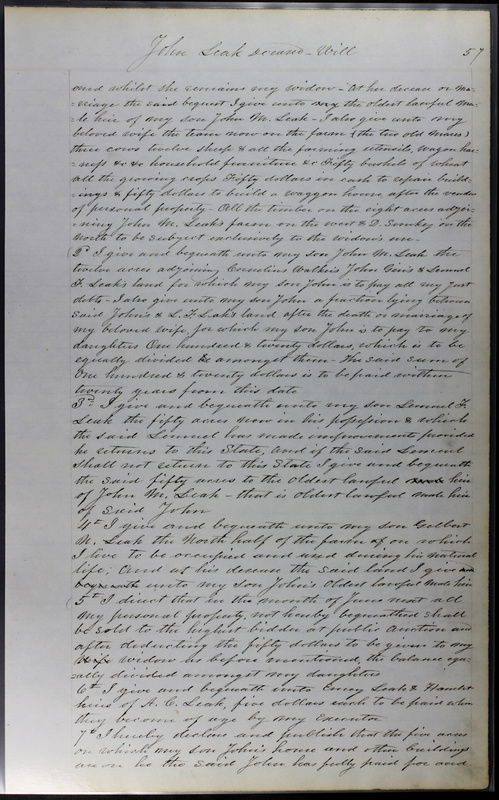 John Leak deceasd - Will
57
and whilst she remains my widow - At her decease or ma-
=riage the said bequest I give unto the oldest lawful ma-
=le heir of my son John M. Leak - I also give unto my
beloved wife the team now on the farm (the two old Mares)
three cows twelve sheep & all the farming utensils, Wagon har-
=ness &c &c household furniture &c Fifty bushels of wheat
all the growing crops Fifty dollars in cash to repair build-
=ings & fifty dollars to build a waggon house after the vendue
of personal property. All the timber on the eight acres adjoi-
=ning John M. Leak's farm on the west & D. on the
North to be subject exclusively to the widow's use.
2d I give and bequeath unto my son John M. Leak the
twelve acres adjoining Cornelius Watkins John & Lemuel
F. Leak's land for which my son John is to pay all my just
debts - I also give unto my son John a fraction lying between
said John's & L. F. Leak's land after the death or marriage of
my beloved wife for which my son John is to pay to my
daughters One hundred & twenty dollars, which is to be
equally divided amongst them - The said sum of
One hundred & twenty dollars is to be paid within
twenty years from this date
3d I give and bequeath unto my son Lemuel F.
Leak the fifty acres now in his possession & which
the said Lemuel has made improvements provided
he returns to this State, and if the said Lemuel
shall not return to this State I give and bequeath
the said fifty acres to the oldest lawful heir
of John M. Leak - that is oldest lawful male heir
of said John
4th I give and bequeath unto my son Gilbert
N. Leak the North half of the farm on which
I live to be occupied and used during his natural
life; And at his decease the said land I give
bequeath unto my son John's Oldest lawful Male heir
5th I direct that in the month of June next all
my personal property, not hereby bequeathed shall
be sold to the highest bidder at public auction and
after deducting the fifty dollars to be given to my
wife widow as before mentioned, the balance equ-
=ally divided amongst my daughters
6th I give and bequeath unto Leak & Hamlet
heirs of A. C. Leak, five dollars each to be paid when
they become of age by my Executor
7th I hereby declare and publish that the five acres
on which my son John's house and other buildings
are on he the said John has fully paid for and